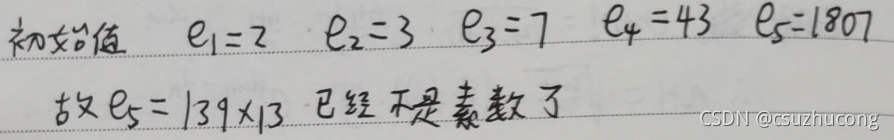 初始值 e₁=2 e₂=3 e₃=7 e₄=43 e₅=1807
故 e₅=139×13 已经不是素数了
CSDN @csuzhucong